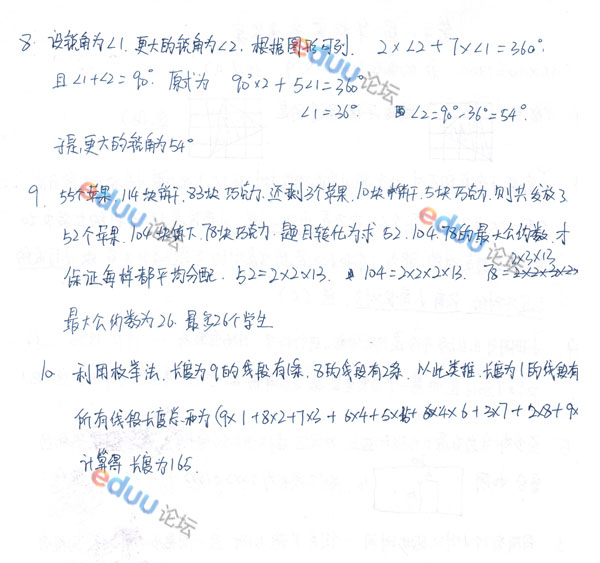 8. 设锐角为∠1. 更大的锐角为∠2. 根据图形可列. 2×∠2+7×∠1=360°.
且∠1+∠2=90°. 原式为 90°×2+5∠1=360°
∠1=36°. ∠2=90°-36°=54°.
于是,更大的锐角为54°
9. 55个苹果. 114块饼干. 83块巧克力. 还剩3个苹果. 10块饼干. 5块巧克力. 则共发放了
52个苹果. 104块饼干. 78块巧克力. 题目转化为求 52. 104. 78的最大公约数. 才
保证每样都平均分配. 52=2×2×13. 104=2×2×2×13. 78=2×3×13
最大公约数为26. 最多26个学生
10. 利用枚举法. 长度为9的线段有1条. 8的线段有2条. 以此类推. 长度为1的线段有
所有线段长度总和为(9×1+8×2+7×3+6×4+5×5+4×6+3×7+2×8+9×
计算得 长度为165.
eduu论坛
eduu论坛
eduu论坛
eduu论坛